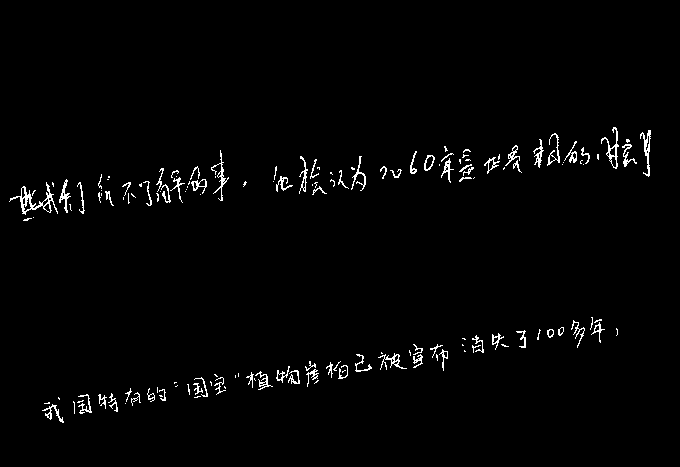 些我们所不了解的事，也会认为2060年是世界末日的时刻
我国特有的“国宝”植物崖柏已被宣布消失了100多年，